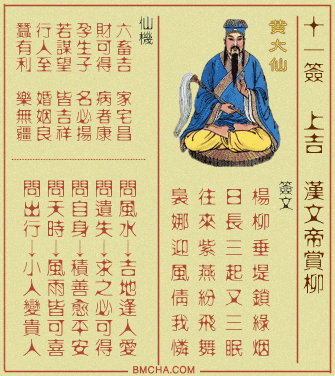 十一簽 上吉 漢文帝賞柳
黃大仙
簽文
楊柳垂堤鎖綠烟
日長三起又三眠
往來紫燕紛飛舞
裊娜迎風倩我憐
仙機
六畜吉 家宅昌
財可得 病者康
孕生子 名必揚
若謀望 皆吉祥
行人至 婚姻良
蠶有利 樂無疆
問風水→吉地逢人愛
問遺失→求之必可得
問自身→積善愈平安
問天時→風雨皆可喜
問出行→小人變貴人
BMCHA.COM